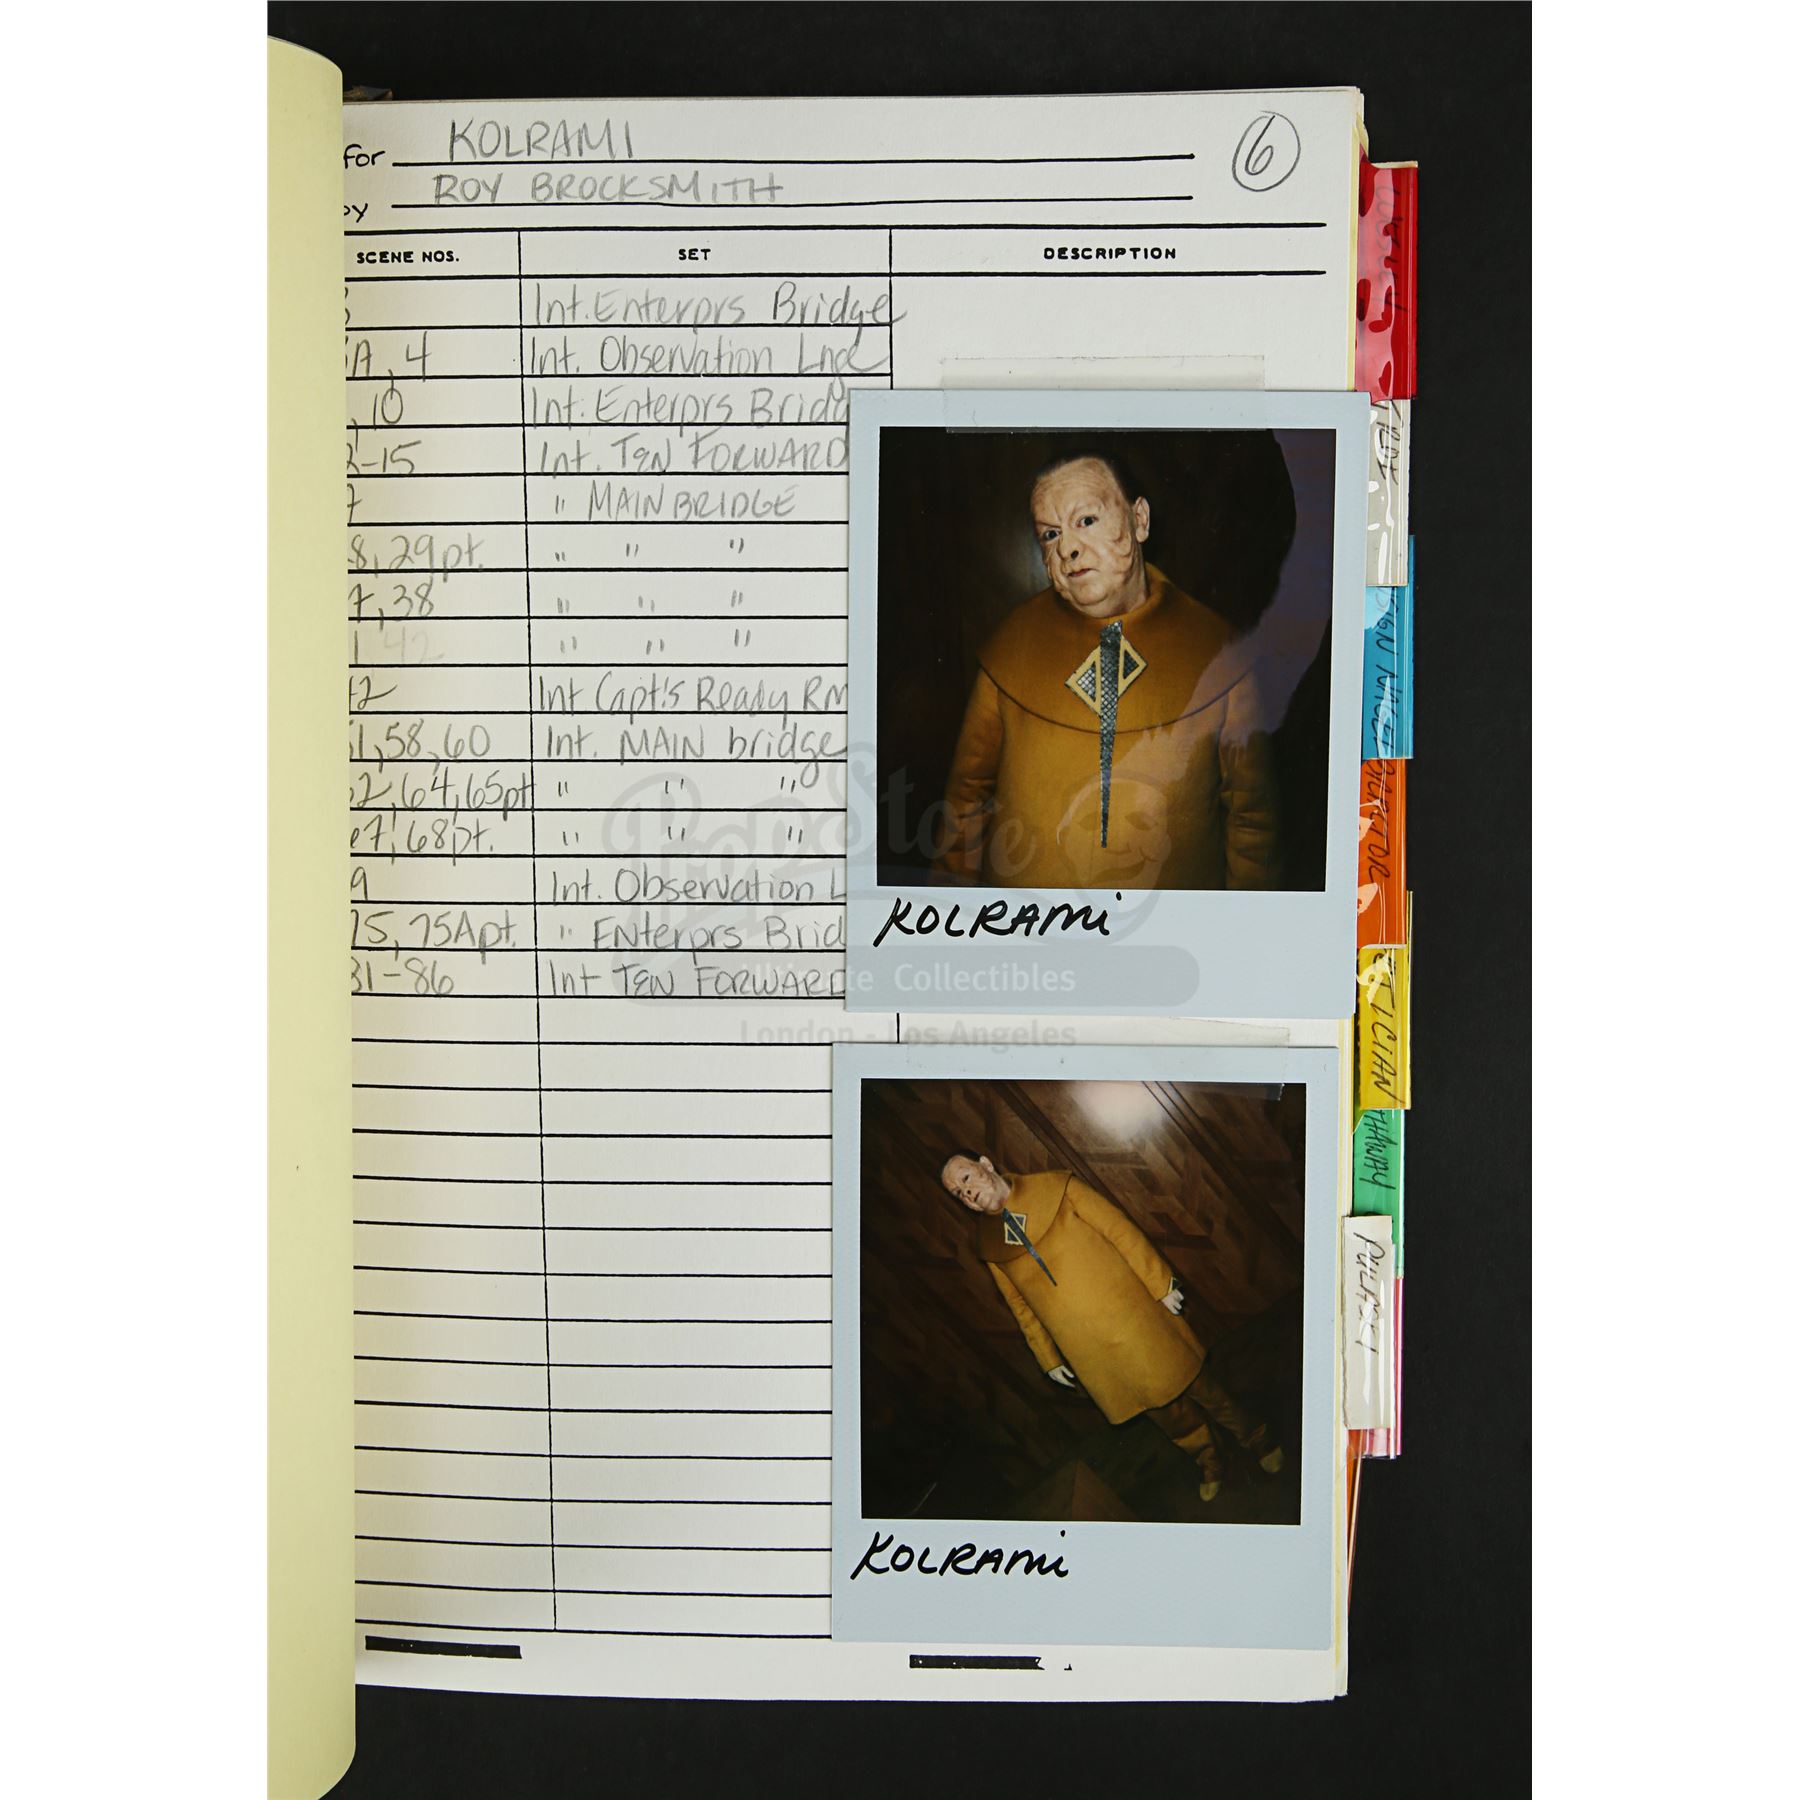 for KOLRAMI
ROY BROCKSMITH
6
SCENE NOS. SET DESCRIPTION
Int. Enterprs Bridge
A, 4 Int. Observation Lnge
, 10 Int. Enterprs Bridg
2-15 Int. TEN FORWARD
7 " MAIN BRIDGE
8, 29pt. " " "
7, 38 " " "
1 42 " " "
42 Int Capt's Ready Rm
51, 58, 60 Int. MAIN bridge
62, 64, 65pt " " "
67, 68pt. " " "
9 Int. Observation L
75, 75Apt. " ENterprs Brid
81-86 Int TEN FORWARD
KOLRAMi
KOLRAMi
PULASKI
Prop Store
Ultimate Collectibles
London - Los Angeles